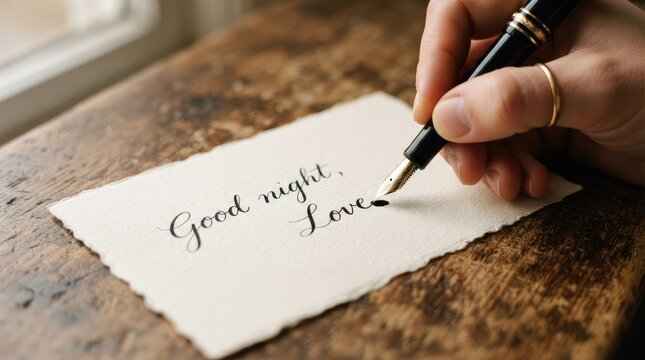 Good night,
Love